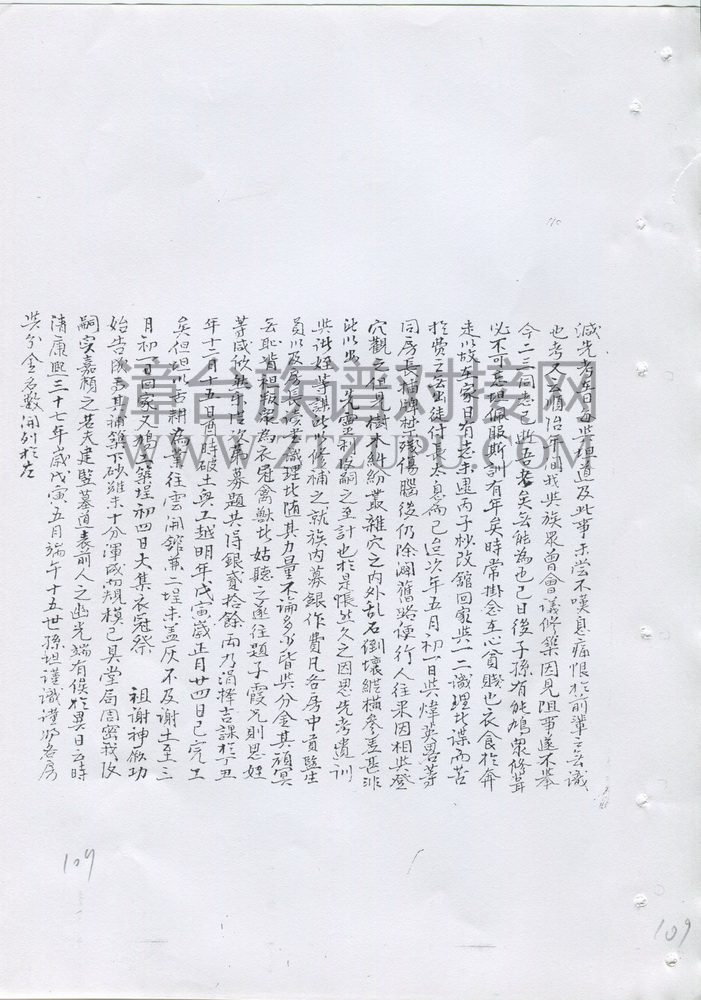 減先考在日每與坦道及此事未尝不嘆息痛恨於前輩之無識
也考又云順治年間我與族眾曾會議修築因見阻事遂不举
今二三同志已逝吾老矣無能為也已日後子孫有能鳩眾修葺
必不可忘坦佩服斯訓有年矣時常掛念在心貧賤也衣食於奔
走以故在家日有志未逮丙子抄改舘回家與一二識理此謀而苦
於費之無出徒付長太息而已迨次年五月初一日與煒英男等
同房長檣輝秘残傷腦後仍除濶舊路便行人往来因相與登
穴觀之但見樹木糾紛叢雜穴之内外乱石倒壞縱横參差甚非
此以安先靈利後嗣之至計也於是悵然久之因思先考遺訓
與諸姪等謀此修補之就族内募銀作費凡各房中貢監生
員以及房長讀書識理此随其力量不論多少皆與分金其頑冥
無恥背祖叛宗為衣冠禽獸此姑聽之遂往題子霞兄則思姪
等咸欣無不次第募題共得銀貳拾餘両乃涓擇吉課於丁丑
年十二月十五日酉時破土興工越明年戊寅歲正月廿四日已完工
矣但坦以舌耕為業往雲開舘兼二埕未盖灰不及谢土至三
月初一日回家又鳩工築埕初四日大集衣冠祭 祖谢神俶功
始告成焉其補築下砂雖未十分渾成而規模已具堂局周密我後
嗣安嘉頼之若夫建竪墓道表前人之幽光端有俟於異日云時
清康熙三十七年歲戊寅五月端午十五世孫坦謹識谨将各房
與分金名數開列於左
109
109
漳台族谱对接网
ZTZUPU.COM